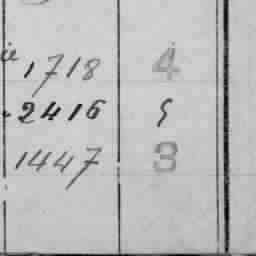 1718 4
2416 5
1447 3